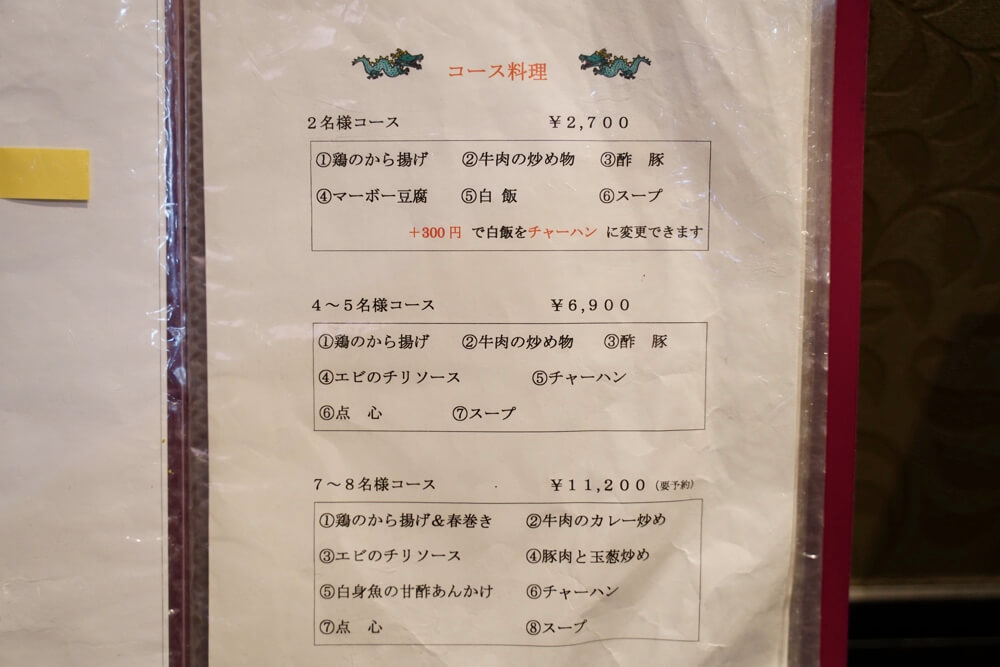 コース料理
2名様コース ￥2,700
①鶏のから揚げ ②牛肉の炒め物 ③酢 豚
④マーボー豆腐 ⑤白 飯 ⑥スープ
＋300円 で白飯をチャーハン に変更できます
4～5名様コース ￥6,900
①鶏のから揚げ ②牛肉の炒め物 ③酢 豚
④エビのチリソース ⑤チャーハン
⑥点 心 ⑦スープ
7～8名様コース ￥11,200（要予約）
①鶏のから揚げ＆春巻き ②牛肉のカレー炒め
③エビのチリソース ④豚肉と玉葱炒め
⑤白身魚の甘酢あんかけ ⑥チャーハン
⑦点 心 ⑧スープ